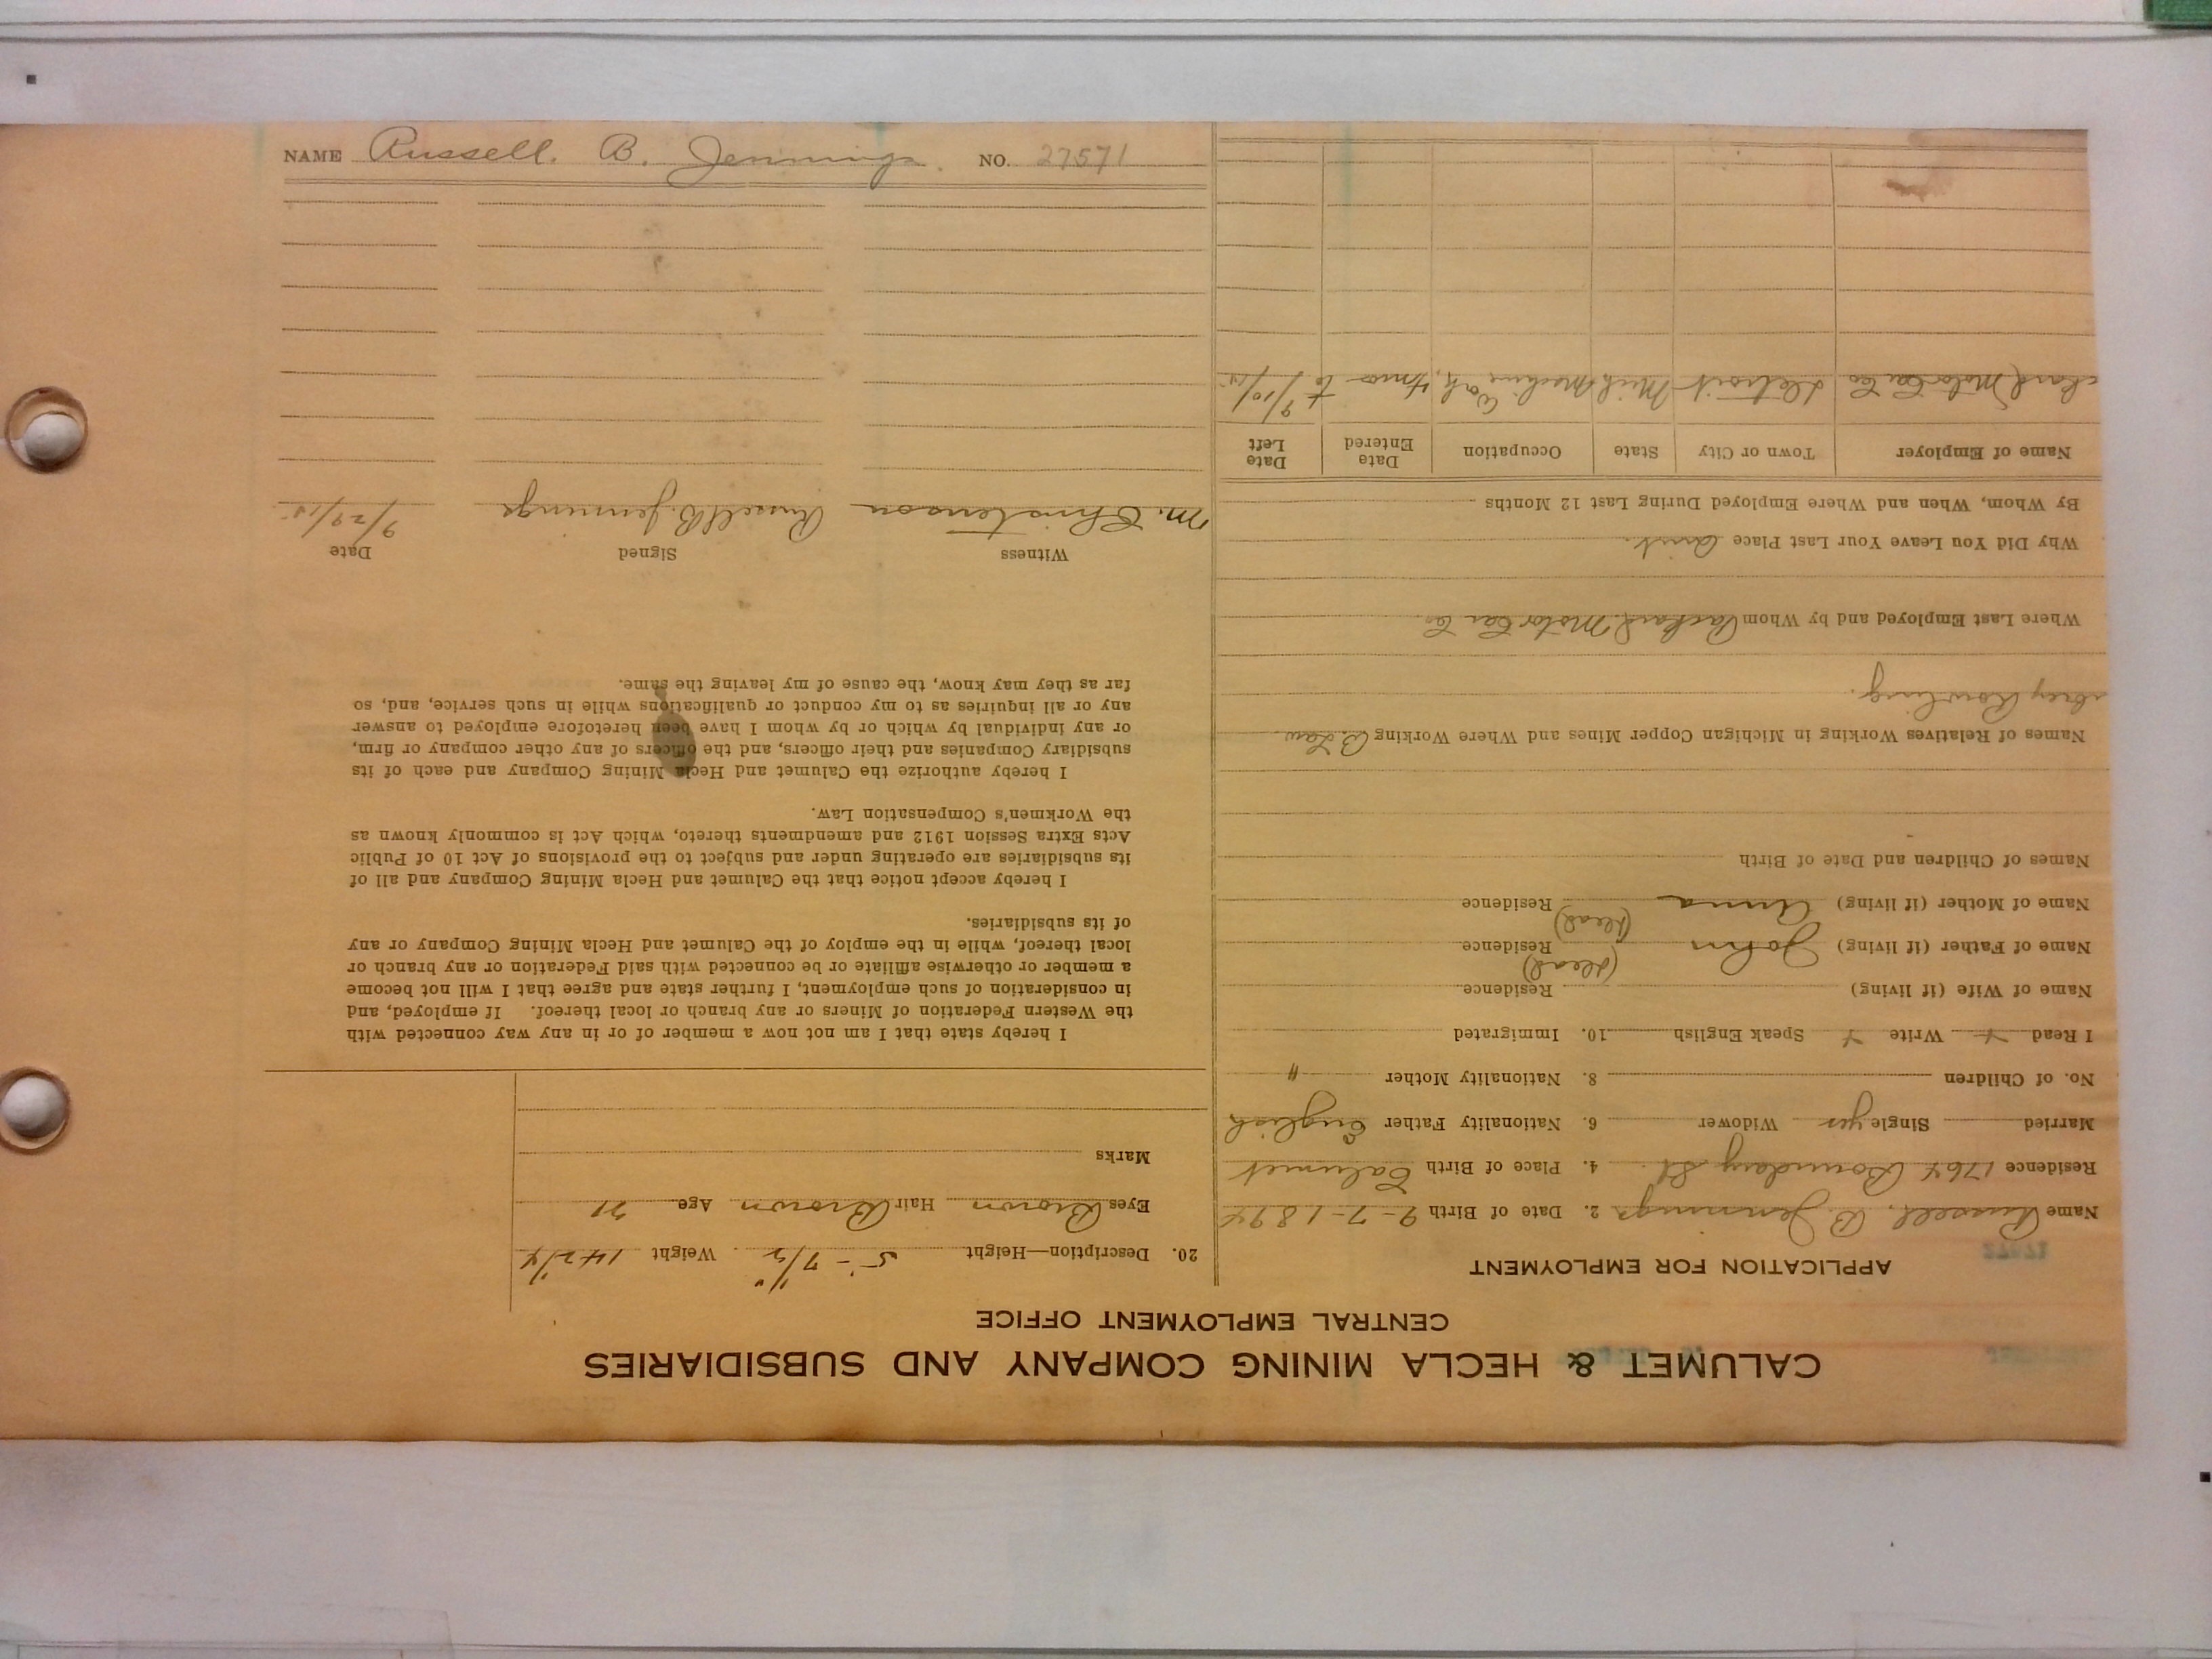 CALUMET & HECLA MINING COMPANY AND SUBSIDIARIES
CENTRAL EMPLOYMENT OFFICE
APPLICATION FOR EMPLOYMENT
Name Russell, B. Jennings 2. Date of Birth 9-7-1894
Residence 1764 Boundary St. 4. Place of Birth Calumet
Married Single yes Widower 6. Nationality Father English
No. of Children 8. Nationality Mother "
I Read + Write + Speak English 10. Immigrated
Name of Wife (if living) Residence
Name of Father (if living) John (dead) Residence
Name of Mother (if living) Anna (dead) Residence
Names of Children and Date of Birth
Names of Relatives Working in Michigan Copper Mines and Where Working B. Law
Rowling.
Where Last Employed and by Whom Packard Motor Car Co
Why Did You Leave Your Last Place Quit.
By Whom, When and Where Employed During Last 12 Months
Name of Employer Town or City State Occupation Date Entered Date Left
ckard Motor Car Co Detroit Mich Machine Wok, 4 mos to 9/10/15
20. Description—Height 5'-7 1/2" Weight 142 1/4
Eyes Brown Hair Brown Age 21
Marks
I hereby state that I am not now a member of or in any way connected with
the Western Federation of Miners or any branch or local thereof. If employed, and
in consideration of such employment, I further state and agree that I will not become
a member or otherwise affiliate or be connected with said Federation or any branch or
local thereof, while in the employ of the Calumet and Hecla Mining Company or any
of its subsidiaries.
I hereby accept notice that the Calumet and Hecla Mining Company and all of
its subsidiaries are operating under and subject to the provisions of Act 10 of Public
Acts Extra Session 1912 and amendments thereto, which Act is commonly known as
the Workmen's Compensation Law.
I hereby authorize the Calumet and Hecla Mining Company and each of its
subsidiary Companies and their officers, and the officers of any other company or firm,
or any individual by which or by whom I have been heretofore employed to answer
any or all inquiries as to my conduct or qualifications while in such service, and, so
far as they may know, the cause of my leaving the same.
Witness Signed Date
M. Christenson Russell B. Jennings 9/29/15
NAME Russell. B. Jennings. NO. 27571